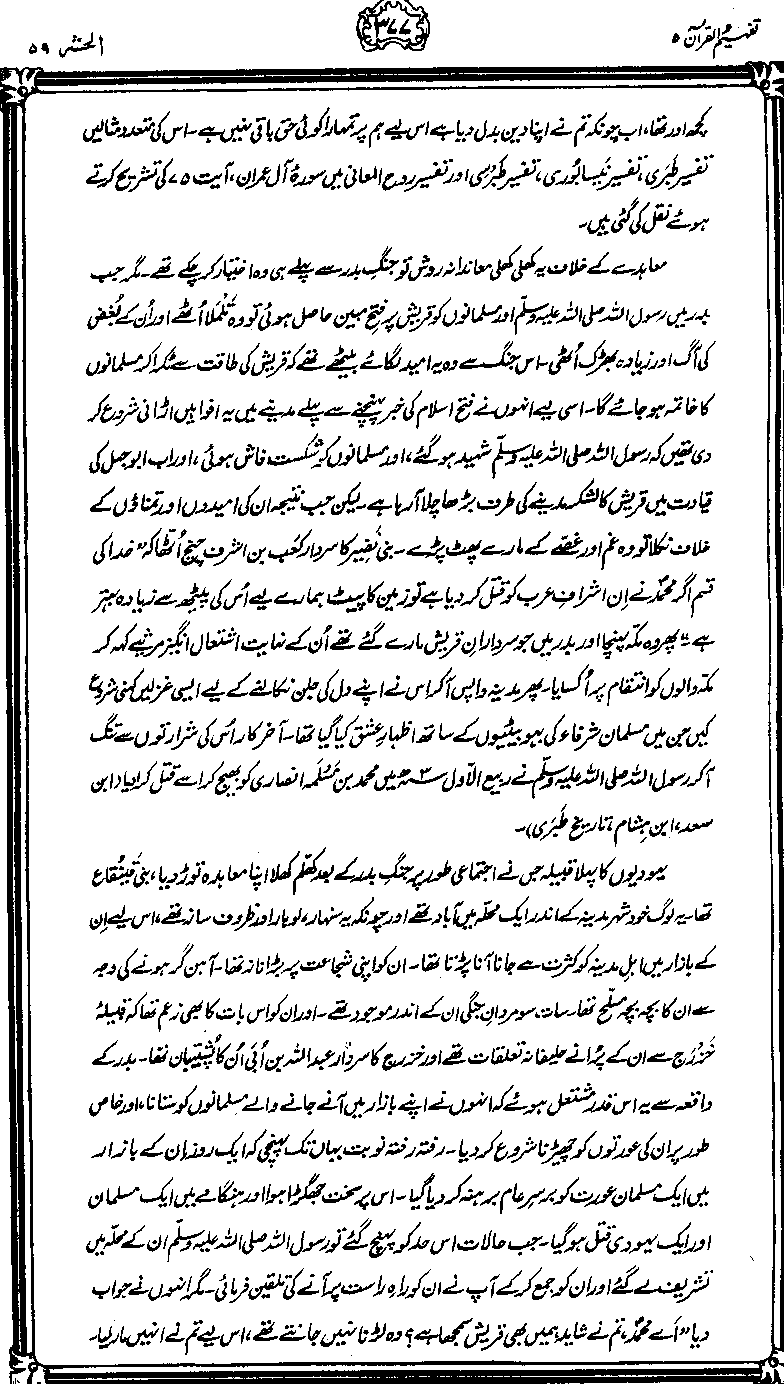 تفہیم القرآن ۵
۳۷۷
الحشر ۵۹
کچھ اور تھا، اب چونکہ تم نے اپنا دین بدل دیا ہے اس لیے ہم پر تمہارا کوئی حق باقی نہیں ہے۔ اس کی متعدد مثالیں
تفسیر طَبَری، تفسیر نیسابوری، تفسیر طَبْرَسی اور تفسیر روح المعانی میں سورۂ آل عمران، آیت ۷۵ کی تشریح کرتے
ہوئے نقل کی گئی ہیں۔
معاہدے کے خلاف یہ کھلی کھلی معاندانہ روش تو جنگِ بدر سے پہلے ہی وہ اختیار کر چکے تھے۔ مگر جب
بدر میں رسول اللہ صلی اللہ علیہ وسلم اور مسلمانوں کو قریش پر فتحِ مبین حاصل ہوئی تو وہ تلملا اُٹھے اور اُن کے بُغض
کی آگ اور زیادہ بھڑک اُٹھی۔ اس جنگ سے وہ یہ امید لگائے بیٹھے تھے کہ قریش کی طاقت سے ٹکرا کر مسلمانوں
کا خاتمہ ہو جائے گا۔ اسی لیے انہوں نے فتح اسلام کی خبر پہنچنے سے پہلے مدینے میں یہ افواہیں اڑانی شروع کر
دی تھیں کہ رسول اللہ صلی اللہ علیہ وسلم شہید ہو گئے، اور مسلمانوں کو شکست فاش ہوئی، اور اب ابو جہل کی
قیادت میں قریش کا لشکر مدینے کی طرف بڑھا چلا آ رہا ہے۔ لیکن جب نتیجہ ان کی امیدوں اور تمناؤں کے
خلاف نکلا تو وہ غم اور غصّے کے مارے پھٹ پڑے۔ بنی نُضیر کا سردار کعب بن اشرف چیخ اُٹھا کہ ”خدا کی
قسم اگر محمدؐ نے اِن اشرافِ عرب کو قتل کر دیا ہے تو زمین کا پیٹ ہمارے لیے اُس کی پیٹھ سے زیادہ بہتر
ہے“۔ پھر وہ مکہ پہنچا اور بدر میں جو سردارانِ قریش مارے گئے تھے اُن کے نہایت اشتعال انگیز مرثیے کہہ کر
مکہ والوں کو انتقام پر اُکسایا۔ پھر مدینہ واپس آکر اس نے اپنے دل کی جلن نکالنے کے لیے ایسی غزلیں کہنی شروع
کیں جن میں مسلمان شرفاء کی بہو بیٹیوں کے ساتھ اظہارِ عشق کیا گیا تھا۔ آخر کار اُس کی شرارتوں سے تنگ
آکر رسول اللہ صلی اللہ علیہ وسلم نے ربیع الاول ۳ھ میں محمد بن مَسْلَمہ انصاری کو بھیج کر اسے قتل کرا دیا (ابن
سعد، ابن ہشام، تاریخ طَبَری)۔
یہودیوں کا پہلا قبیلہ جس نے اجتماعی طور پر جنگِ بدر کے بعد کھلم کھلا اپنا معاہدہ توڑ دیا، بنی قینُقاع
تھا۔ یہ لوگ خود شہر مدینہ کے اندر ایک محلہ میں آباد تھے اور چونکہ یہ سنہار، لوہار اور ظروف ساز تھے، اس لیے اِن
کے بازار میں اہلِ مدینہ کو کثرت سے جانا آنا پڑتا تھا۔ ان کو اپنی شجاعت پر بڑا ناز تھا۔ آہن گر ہونے کی وجہ
سے ان کا بچہ بچہ مسلّح تھا۔ سات سو مردانِ جنگی ان کے اندر موجود تھے۔ اور ان کو اس بات کا بھی زعم تھا کہ قبیلۂ
خَزْرَج سے ان کے پُرانے حلیفانہ تعلقات تھے اور خزرج کا سردار عبد اللہ بن اُبَی اُن کا پُشتیبان تھا۔ بدر کے
واقعہ سے یہ اس قدر مشتعل ہوئے کہ انہوں نے اپنے بازار میں آنے جانے والے مسلمانوں کو ستانا، اور خاص
طور پر ان کی عورتوں کو چھیڑنا شروع کر دیا۔ رفتہ رفتہ نوبت یہاں تک پہنچی کہ ایک روز ان کے بازار
میں ایک مسلمان عورت کو برسرِ عام برہنہ کر دیا گیا۔ اس پر سخت جھگڑا ہوا اور ہنگامے میں ایک مسلمان
اور ایک یہودی قتل ہو گیا۔ جب حالات اس حد کو پہنچ گئے تو رسول اللہ صلی اللہ علیہ وسلم ان کے محلہ میں
تشریف لے گئے اور ان کو جمع کر کے آپ نے ان کو راہِ راست پر آنے کی تلقین فرمائی۔ مگر انہوں نے جواب
دیا ”اَے محمدؐ، تم نے شاید ہمیں بھی قریش سمجھا ہے؟ وہ لڑنا نہیں جانتے تھے، اس لیے تم نے انہیں مار لیا۔